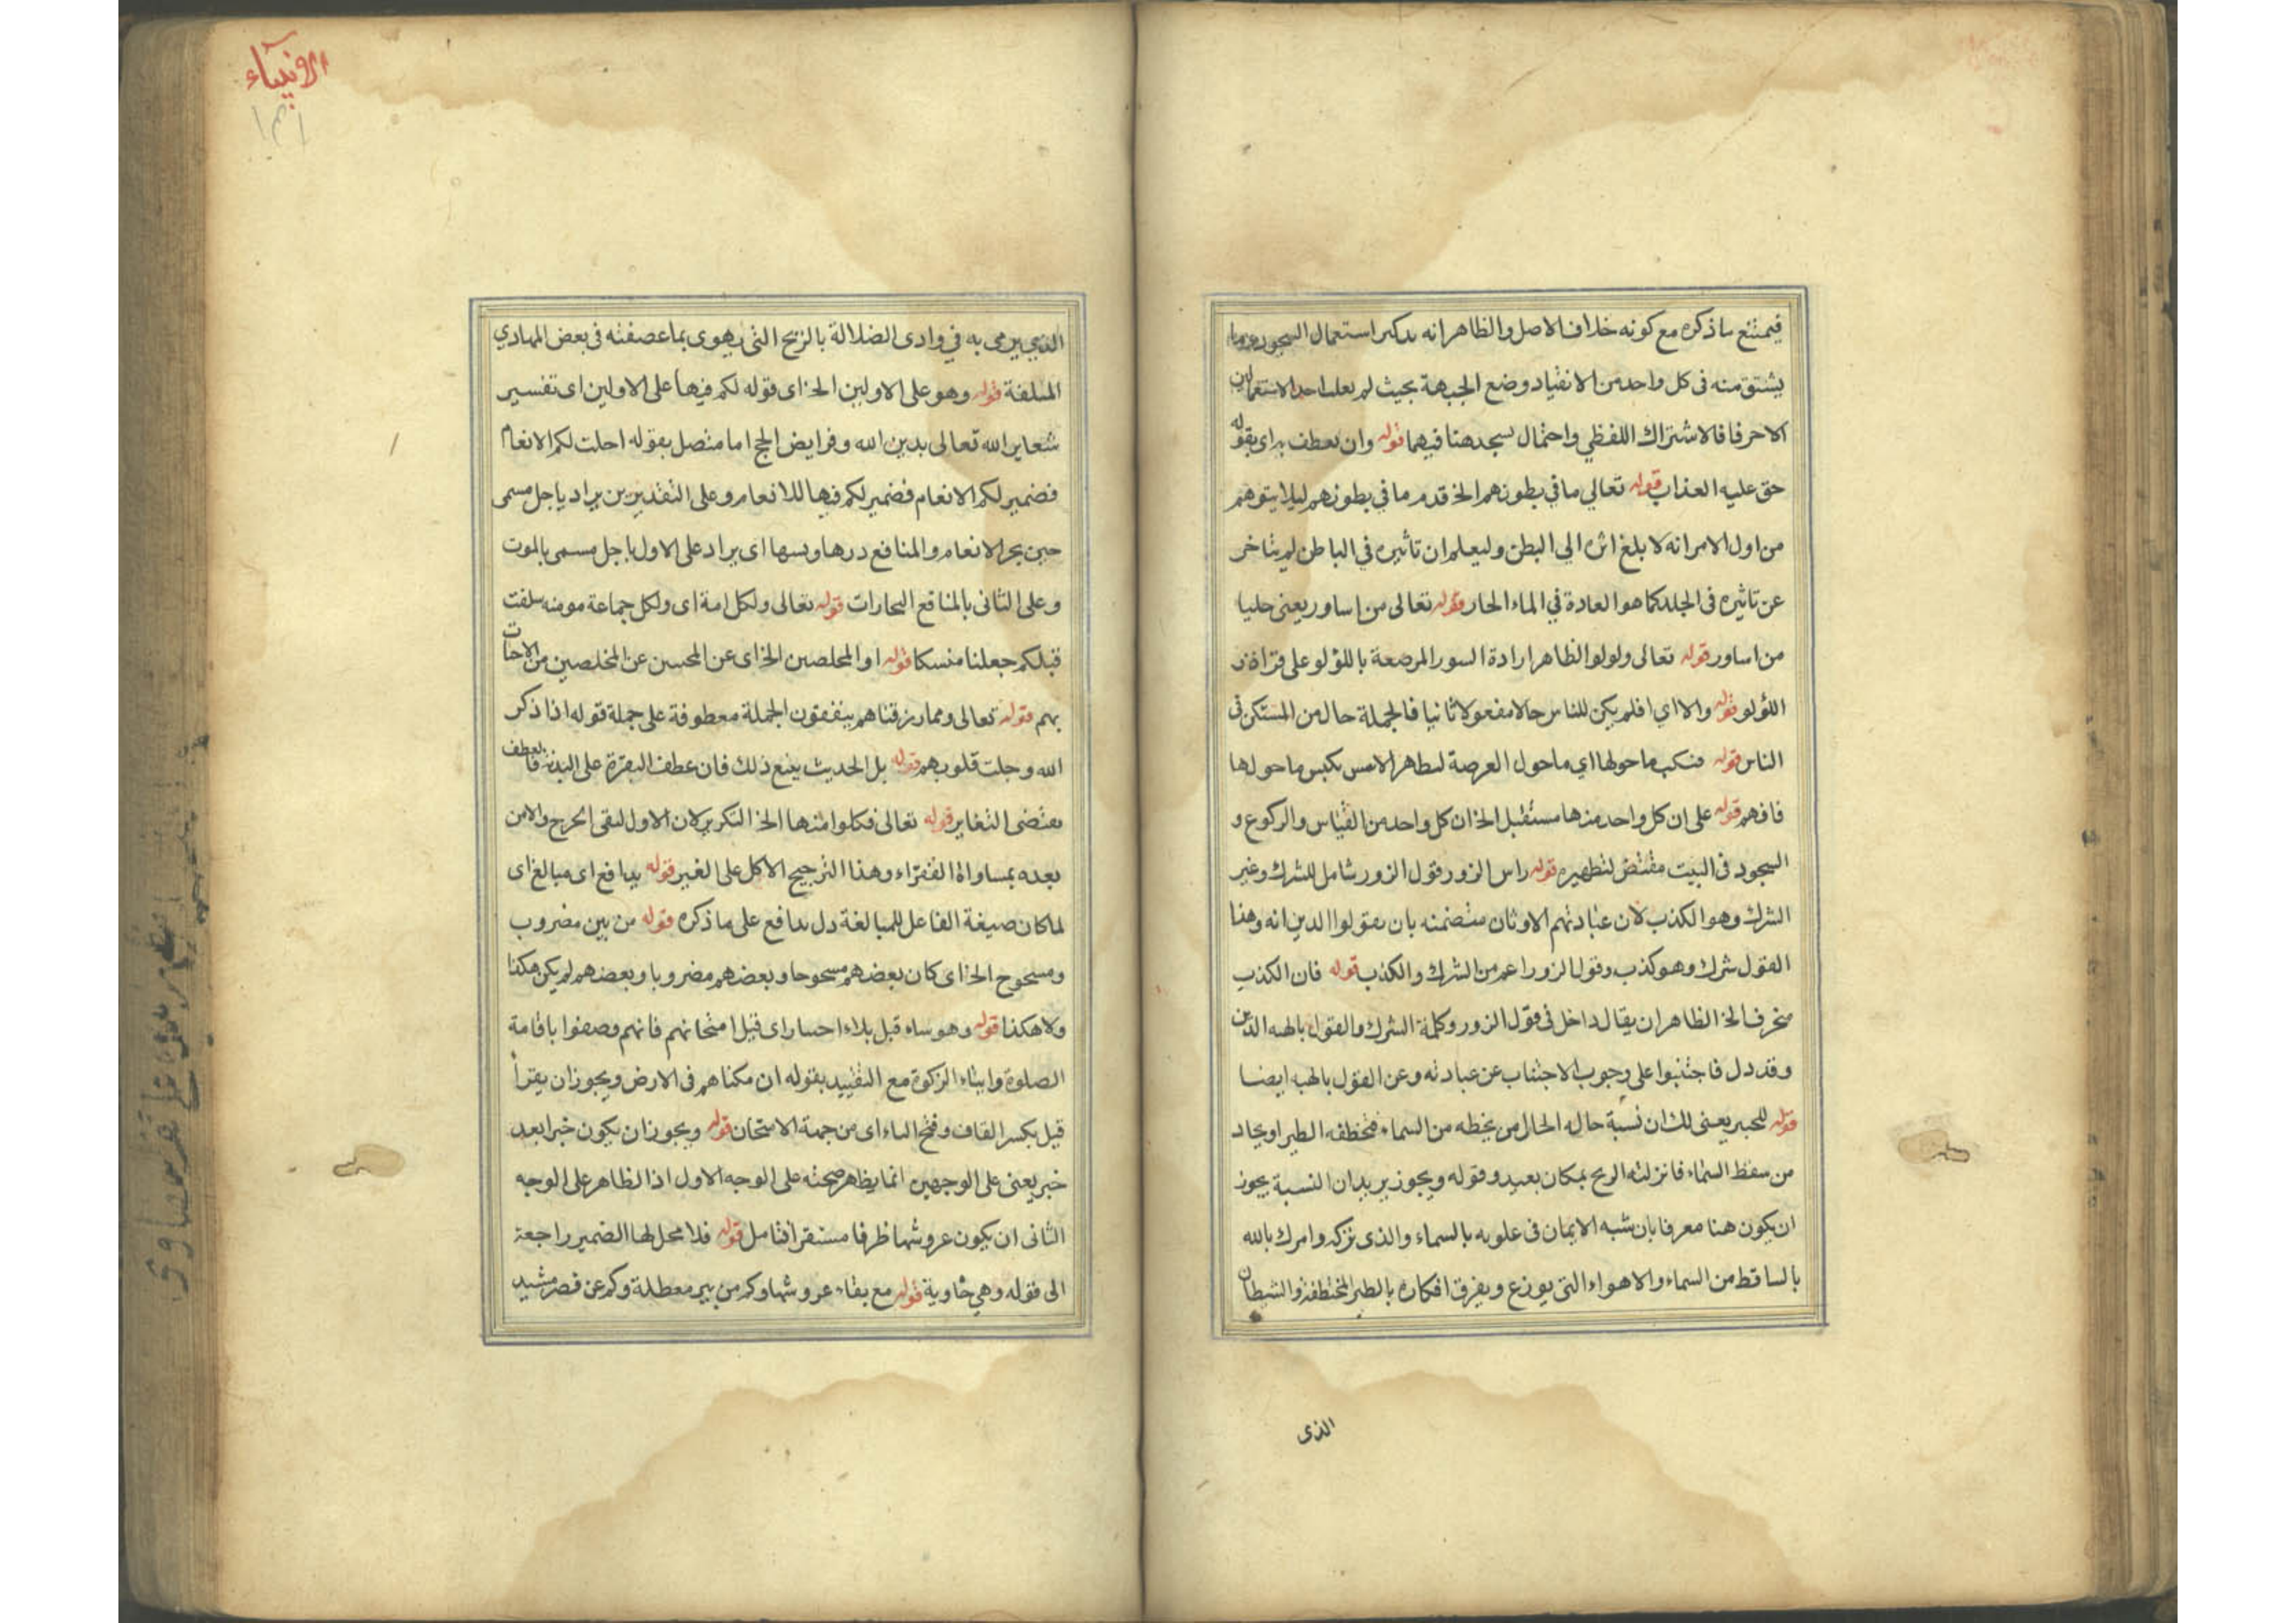 فيمتنع ما ذكره مع كونه خلاف الاصل والظاهر انه يدكر استعمال السجود
يشتق منه فى كل واحد من الانقياد وضع الجبهة بحيث لم يعلم احد الاستعمالين
الاخر فا فالاشتراك اللفظي واحتمال يسجد هنا فيهما قوله وان يعطف به اى بقوله
حق عليه العذاب قوله تعالى ما في بطونهم الخ قدم ما في بطونهم ليلا يتوهم
من اول الامر انه لا بلغ اثره الى البطن وليعلم ان تاثيره في الباطن لم يتاخر
عن تاثيره فى الجلد كما هو العادة في الماء الحار قوله تعالى من اساور يعنى حليا
من اساور قوله تعالى ولولوا الظاهر ارادة السور المرصعة باللؤلو على قراءة
اللؤلو قوله والا اي افلم يكن للناس حالا مفعولا ثانيا فالجملة حال من المستكن فى
الناس قوله فنكب ما حولها اي ما حول العرصة ليطهر الامس بكبس ما حولها
فافهم قوله على ان كل واحد منها مستقبل الخ ان كل واحد من القيام والركوع و
السجود فى البيت مقتض لتطهيره قوله راس الزور قول الزور شامل للشرك وغير
الشرك وهو الكذب لان عبادتهم الاوثان متضمنه بان يقولوا الدين انه وهنا
القول شرك وهو كذب وقول الزور اعم من الشرك والكذب قوله فان الكذب
منحرف الخ الظاهر ان يقال داخل فى قول الزور وكلمة الشرك والقول بالهه الذين
وقد دل فاجتنبوا على وجوب الاجتناب عن عبادته وعن القول بالهه ايضا
قوله للتخيير يعنى لك ان نسبة حاله الحال من يخطه من السماء فتخطفه الطير او بحاد
من سقط السماء فانزلته الريح بمكان بعيد وقوله ويجوز يريد ان النسبة يجوز
ان يكون هنا معرفا بان شبه الايمان فى علوه بالسماء والذى تركه وامرك بالله
بالساقط من السماء والاهواء التى يوزع ويفرق افكاره بالطير المختطفة والشيطان
الذى
الانبياء
الذي يرمى به في وادى الضلالة بالريح التى يهوى بما عصفته فى بعض المهادي
المتلفة قوله وهو على الاولين الخ اى قوله لكم فيها على الاولين اى تفسير
شعاير الله تعالى بدين الله وفرايض الحج اما متصل بقوله احلت لكم الانعام
فضمير لكم الانعام فضمير لكم فيها للانعام وعلى التقديرين يراد باجل مسمى
حين نحر الانعام والمنافع درها ونسلها اى يراد على الاول باجل مسمى بالموت
وعلى الثانى بالمنافع التجارات قوله تعالى ولكل امة اى ولكل جماعة مومنه سلفت
قبلكم جعلنا منسكا قوله او المخلصين الخ اى عن المحسن عن المخلصين من الاخبات
بهم قوله تعالى ومما رزقناهم ينفقون الجملة معطوفة على جملة قوله اذا ذكر
الله وجلت قلوبهم قوله بل الحديث يمنع ذلك فان عطف البقرة على البدنة فالعطف
يقتضى التغاير قوله تعالى فكلوا منها الخ التكرير لان الاول لنفى الحرج والامن
بعده بمساواة الفقراء وهذا الترجيح الاكل على الغير قوله يدافع اى مبالغ اى
لما كان صيغة الفاعل للمبالغة دل يدافع على ما ذكره قوله من بين مضروب
ومسحوح الخ اى كان بعضهم مسحوحا وبعضهم مضروبا وبعضهم لم يكن هكذا
ولا هكذا قوله وهو ساء قبل بلاء احسار اى قبل امتحانهم فانهم وصفوا باقامة
الصلوة وايتاء الزكوة مع التقييد بقوله ان مكناهم فى الارض ويجوز ان يقرأ
قيل بكسر القاف وفتح الياء اى من جهة الامتحان قوله ويجوز ان يكون خبرا بعد
خبر يعنى على الوجهين انما يظهر صحته على الوجه الاول اذ الظاهر على الوجه
الثانى ان يكون عروشها ظرفا مستقرا فتامل قوله فلا محل لها الضمير راجعة
الى قوله وهي خاوية قوله مع بقاء عروشها وكم من بير معطلة وكم عن قصر مشيد